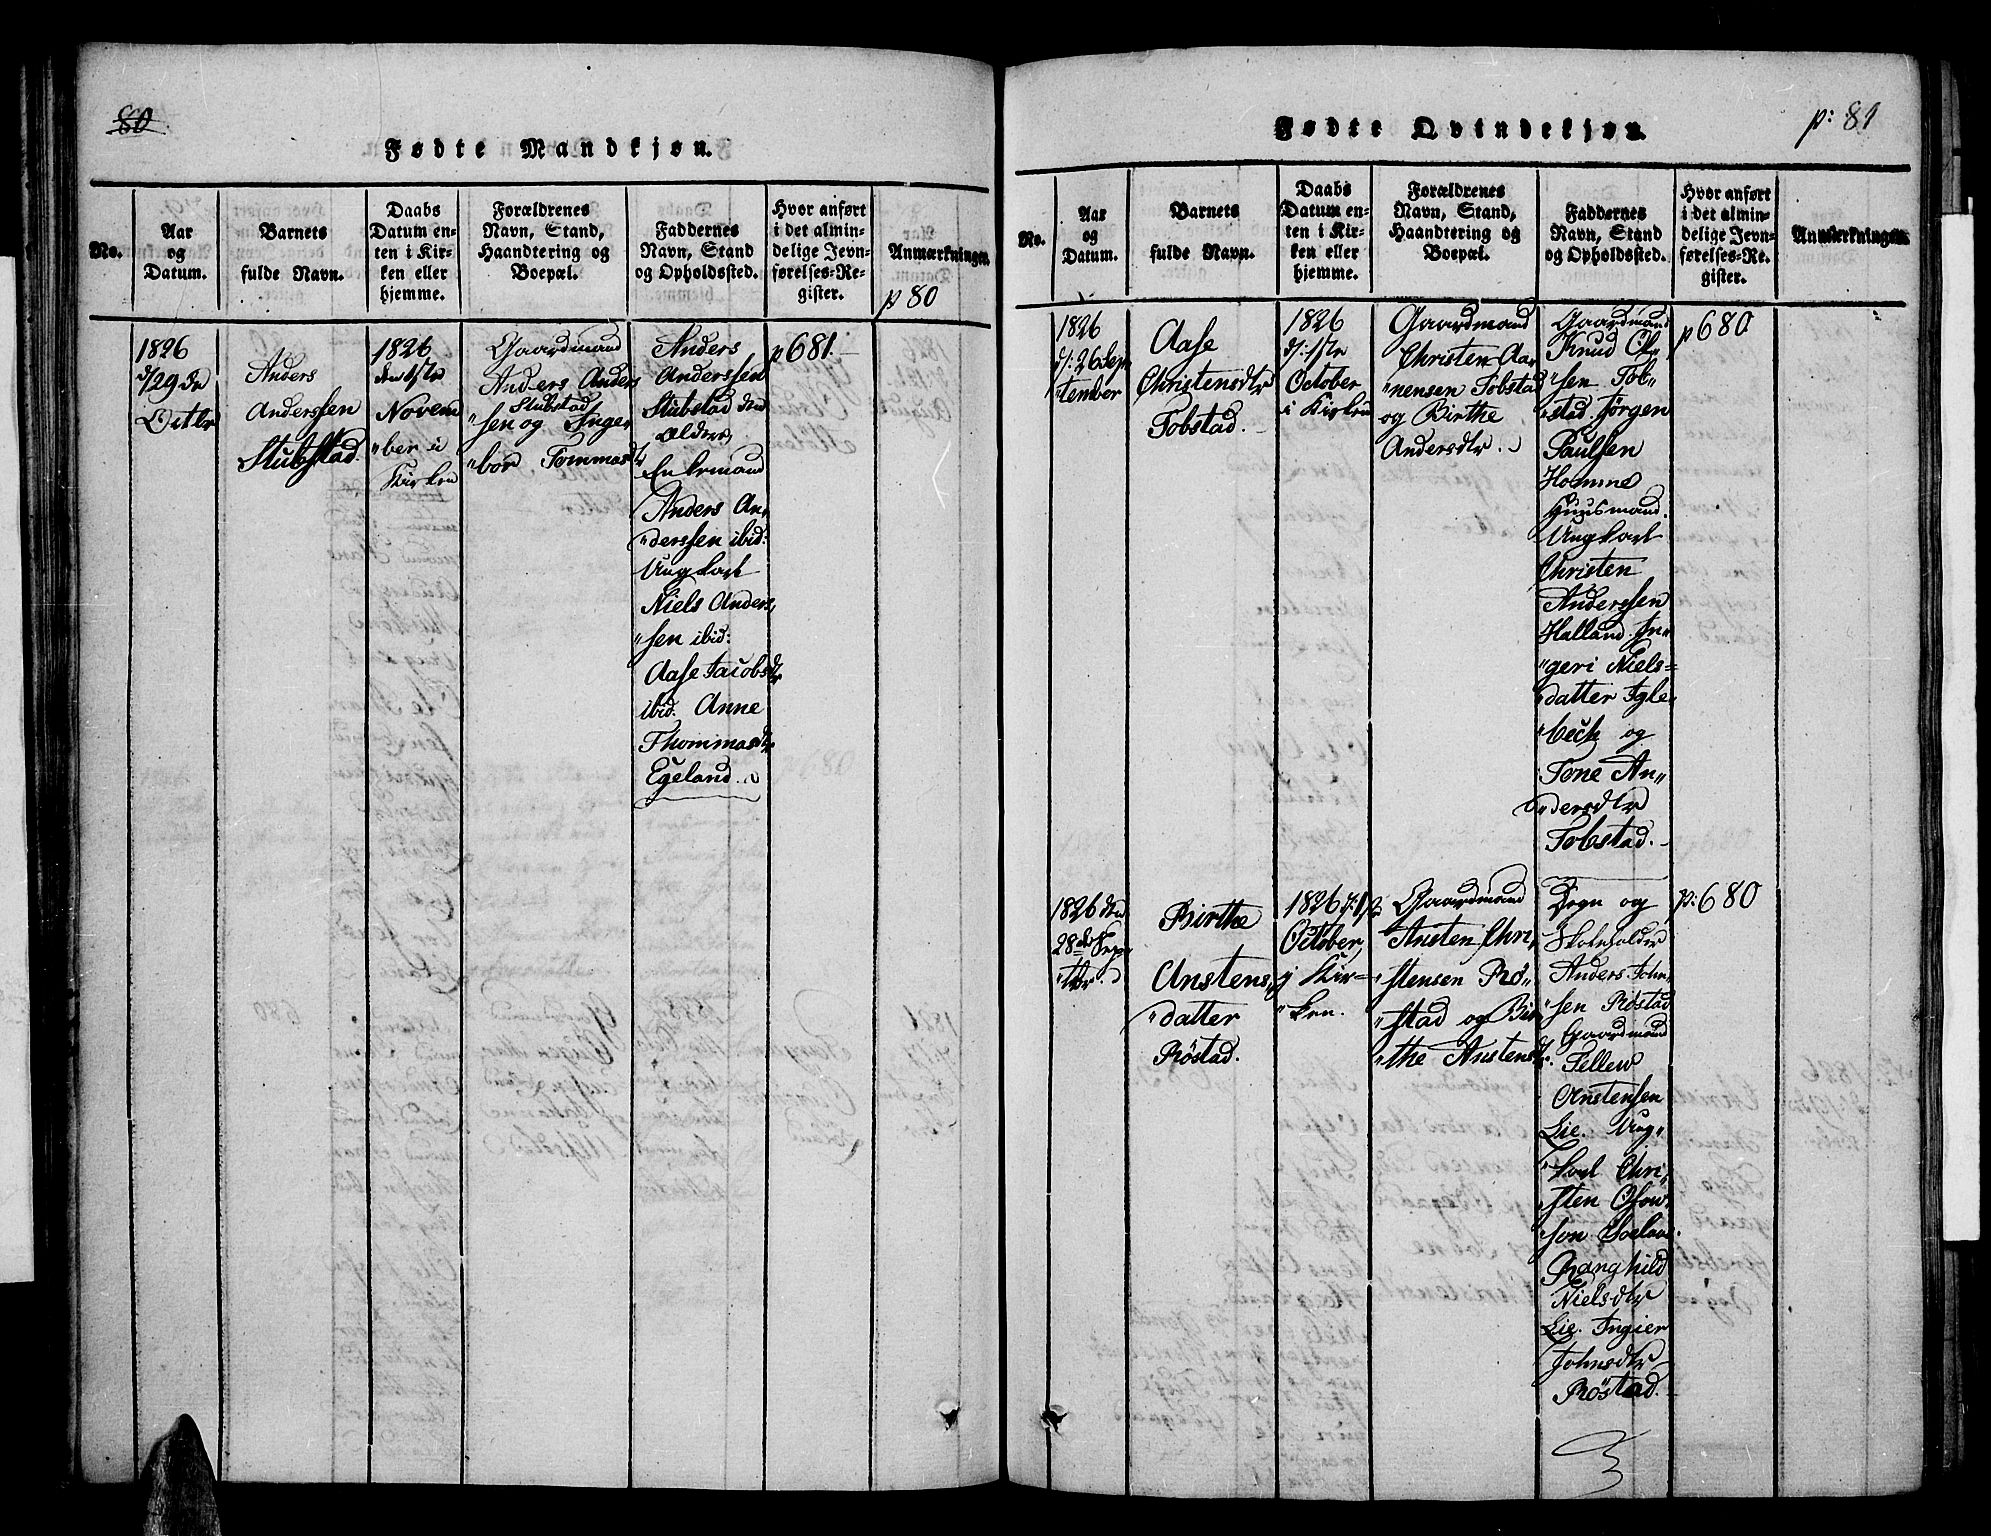 80
Fødte Mandkjøn.
No.
Aar
og
Datum.
Barnets
fulde Navn.
Daabs
Datum en-
ten i Kir-
ken eller
hjemme.
Forældrenes
Navn, Stand,
Haandtering og
Boepæl.
Faddernes
Navn, Stand
og Opholdssted.
Hvor anført
i det almin-
delige Jevn-
førelses-Re-
gister.
Anmærkninger.
p 80
1826
d/29de
Octbr
Anders
Anderssen
Stubstad.
1826
den 1ste
Novem
"ber i
Kirken
Gaardmand
Anders Anders
Stubstad
"sen og Inge
"bor Tommasdtr
Anders
Anderssen
Stubstad den
Ældres,
Enkemand
Anders An"
"derssen ibid:
Ungkarl
Niels Anders,
"sen ibid:
Aase Jacobsdtr
ibid. Anne
Thommasdtr
Egeland.
p 681.
Fødte Qvindekjøn.
p: 81
No.
Aar
og
Datum.
Barnets
fulde Navn.
Daabs
Datum en-
ten i Kir-
ken eller
hjemme.
Forældrenes
Navn, Stand,
Haandtering og
Boepæl.
Faddernes
Navn, Stand
og Opholdssted.
Hvor anført
i det almin-
delige Jevn-
førelses-Re-
gister.
Anmærkninger.
1826
d: 26 Sep
"tember
Aase
Christensdtr
Tobstad.
1826
d: 1ste
October
i Kirken
Gaardmand
Christen Aa"
"nensen Tobstad
og Birthe
Andersdtr.
Gaardmand
Knud Ol"
"sen Tob"
"stad. Jørgen
Paulsen
Homme
Huusmand.
Ungkarl
Christen
Anderssen
Halland. In"
"geri Niels=
"datter Igle"
"beck og
Tone An"
"dersdtr
Tobstad.
p 680
1826 den
28de Sep
"tbr.
Birthe
Anstens,
"datter
Røstad.
1826 d: 1ste
October,
j Kir=
"ken.
Gaardmand
Ansten Chri,
"stensen Rø"
"stad og Bir
"the Anstensdtr.
Degn og
Skoleholder
Anders John,
"sen Røstad
Gaardmand
Tellew
Anstensen
Lie. Ung"
"karl Chri"
"sten Osow"
"son
Ranghild
Nielsdtr
Lie. Ingier
Johnsdtr
Røstad.
p: 680